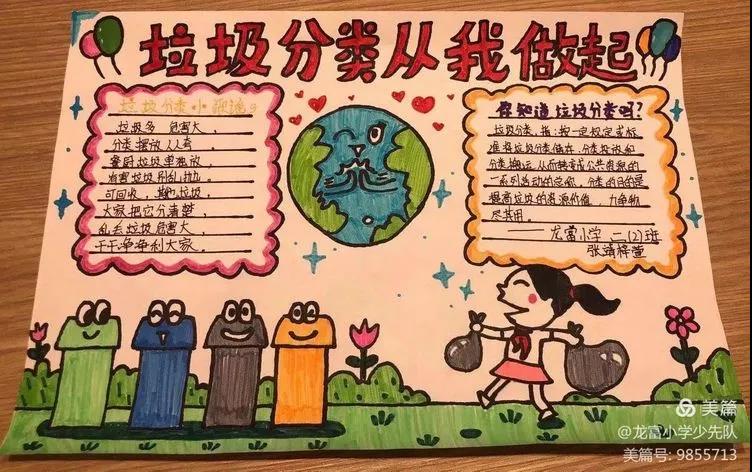 垃圾分类从我做起
垃圾分类小
垃圾多 危害大,
分类摆放人人夸,
餐厨垃圾单独放,
有害垃圾别乱扔,
可回收,其他垃圾,
大家把它分清楚,
乱丢垃圾危害大,
干干净净利大家.
你知道垃圾分类吗?
垃圾分类,指按一定规定或标
准将垃圾分类储存、分类投放和
分类搬运,从而转变成公共资源的
一系列活动的总称,分类的目的是
提高垃圾的资源价值,力争物
尽其用.
——龙富小学 二(2)班
张靖梓萱
美篇
@龙富小学少先队
美篇号: 9855713